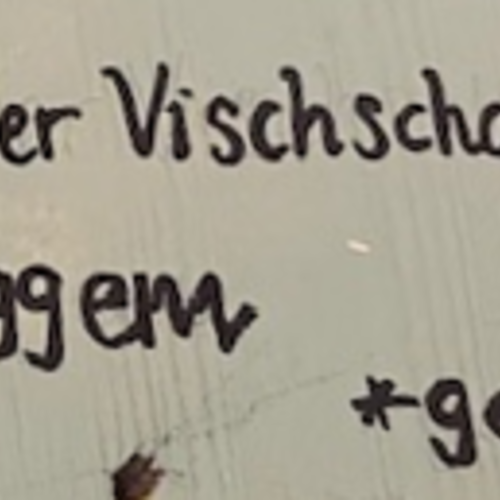 er Vischscho
ggem
*ge